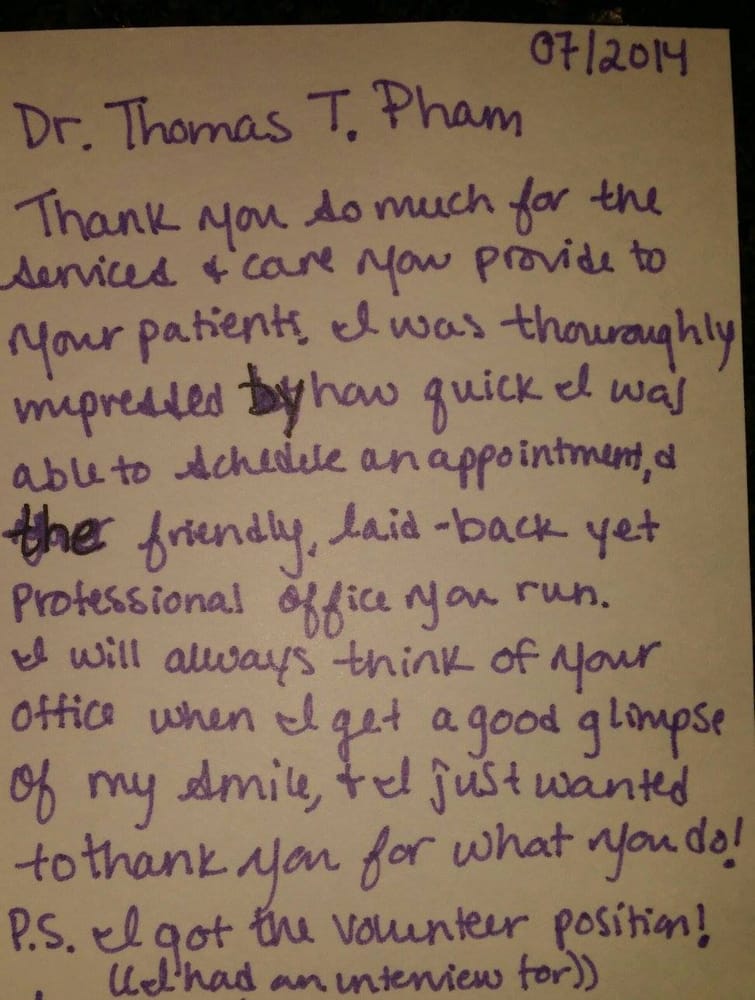 07/2014
Dr. Thomas T. Pham
Thank you so much for the
services & care you provide to
your patients. I was thouroughly
impressed by how quick I was
able to schedele an appointment, &
the friendly, laid-back yet
Professional office you run.
I will always think of your
office when I get a good glimpse
of my smile, & I just wanted
to thank you for what you do!
P.S. I got the volunteer position!
((I had an interview for))